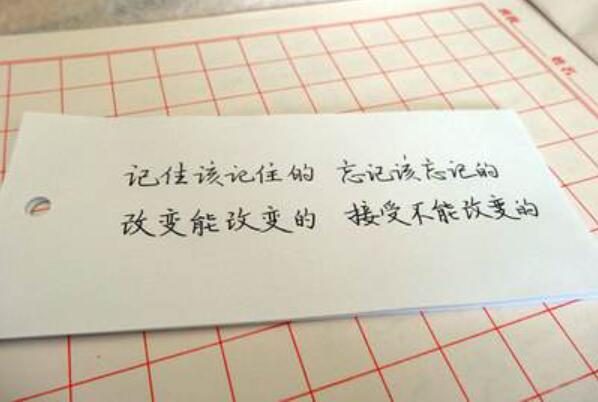 记住该记住的 忘记该忘记的
改变能改变的 接受不能改变的
姓名